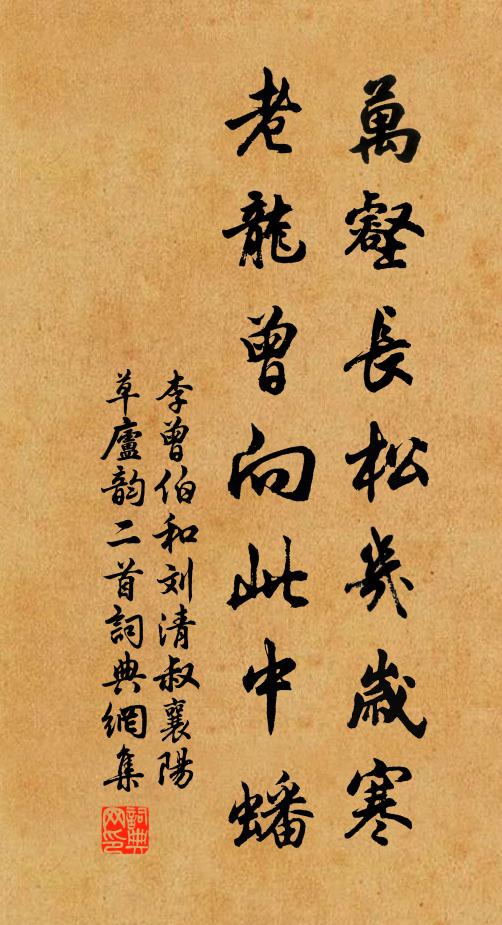 萬壑長松幾歲寒
老龍曾向此中蟠
李曾伯和刘清叔襄陽
草廬韵二首詞典網集
詞典網印